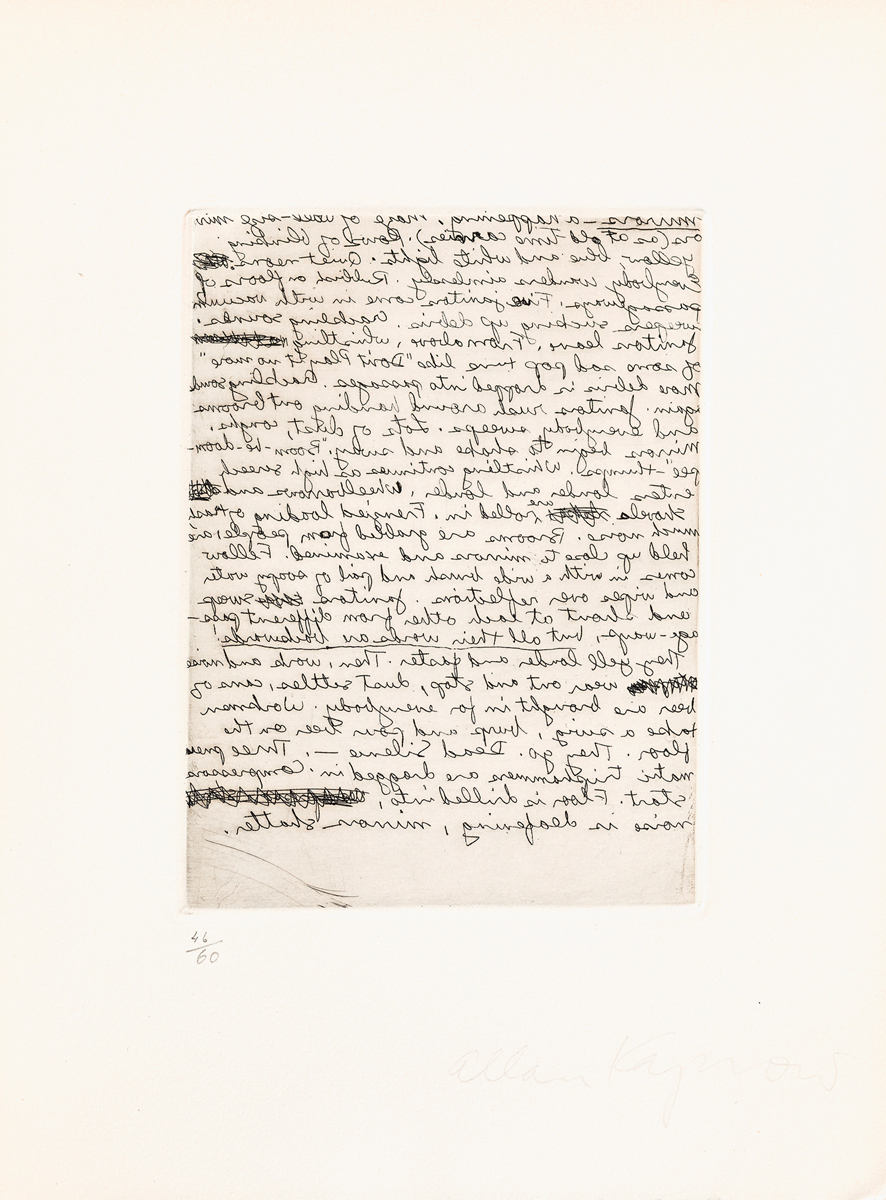 mirrors — a happening. maze of wall-size mirr
ors (as at old time carnies). Rows of blinking
yellow blue and white lights. Quiet neons.
Everybody wanders aimlessly. Rubbish on floors of
passageways. Five janitors come in with vacuum
sweepers sucking up debris. Crackling sounds.
Janitors leave. From above, whistling
of some sad pop tune like "Don't Play It no more"
More debris is dropped into passages. Crackling sound
again. Janitors rush around handing out brooms
and everybody sweeps. Lots of dust, coughs.
Mirrors begin to shake and sway. "Boom-be-doom-
pee"-thumps. Whistling continues as high screech
enters louder and louder. Wheelbarrows and
shovels are rolled in. Frenzied loading of trash
much more. Brooms are grabbed from people, are
held up close to mirrors and examined. Fellow
comes in with a wide brush and pail of soapy water
and wipes over reflections. Janitors sweep
and shout at each other from different pass-
age-ways, but all their words are backwards!
They yell louder and faster. Then, work and noise
wear out and stop, dust settles, cans of
beer are brought in for everybody. Workmen
take a swig, burp and pour beer on the
floor. They go. Dead Silence —. Three pneu
matic triphammers are dragged in. Compressors
start. Floor is drilled into,
noise is deafening, mirrors shatter.
46/60
Allan Kaprow